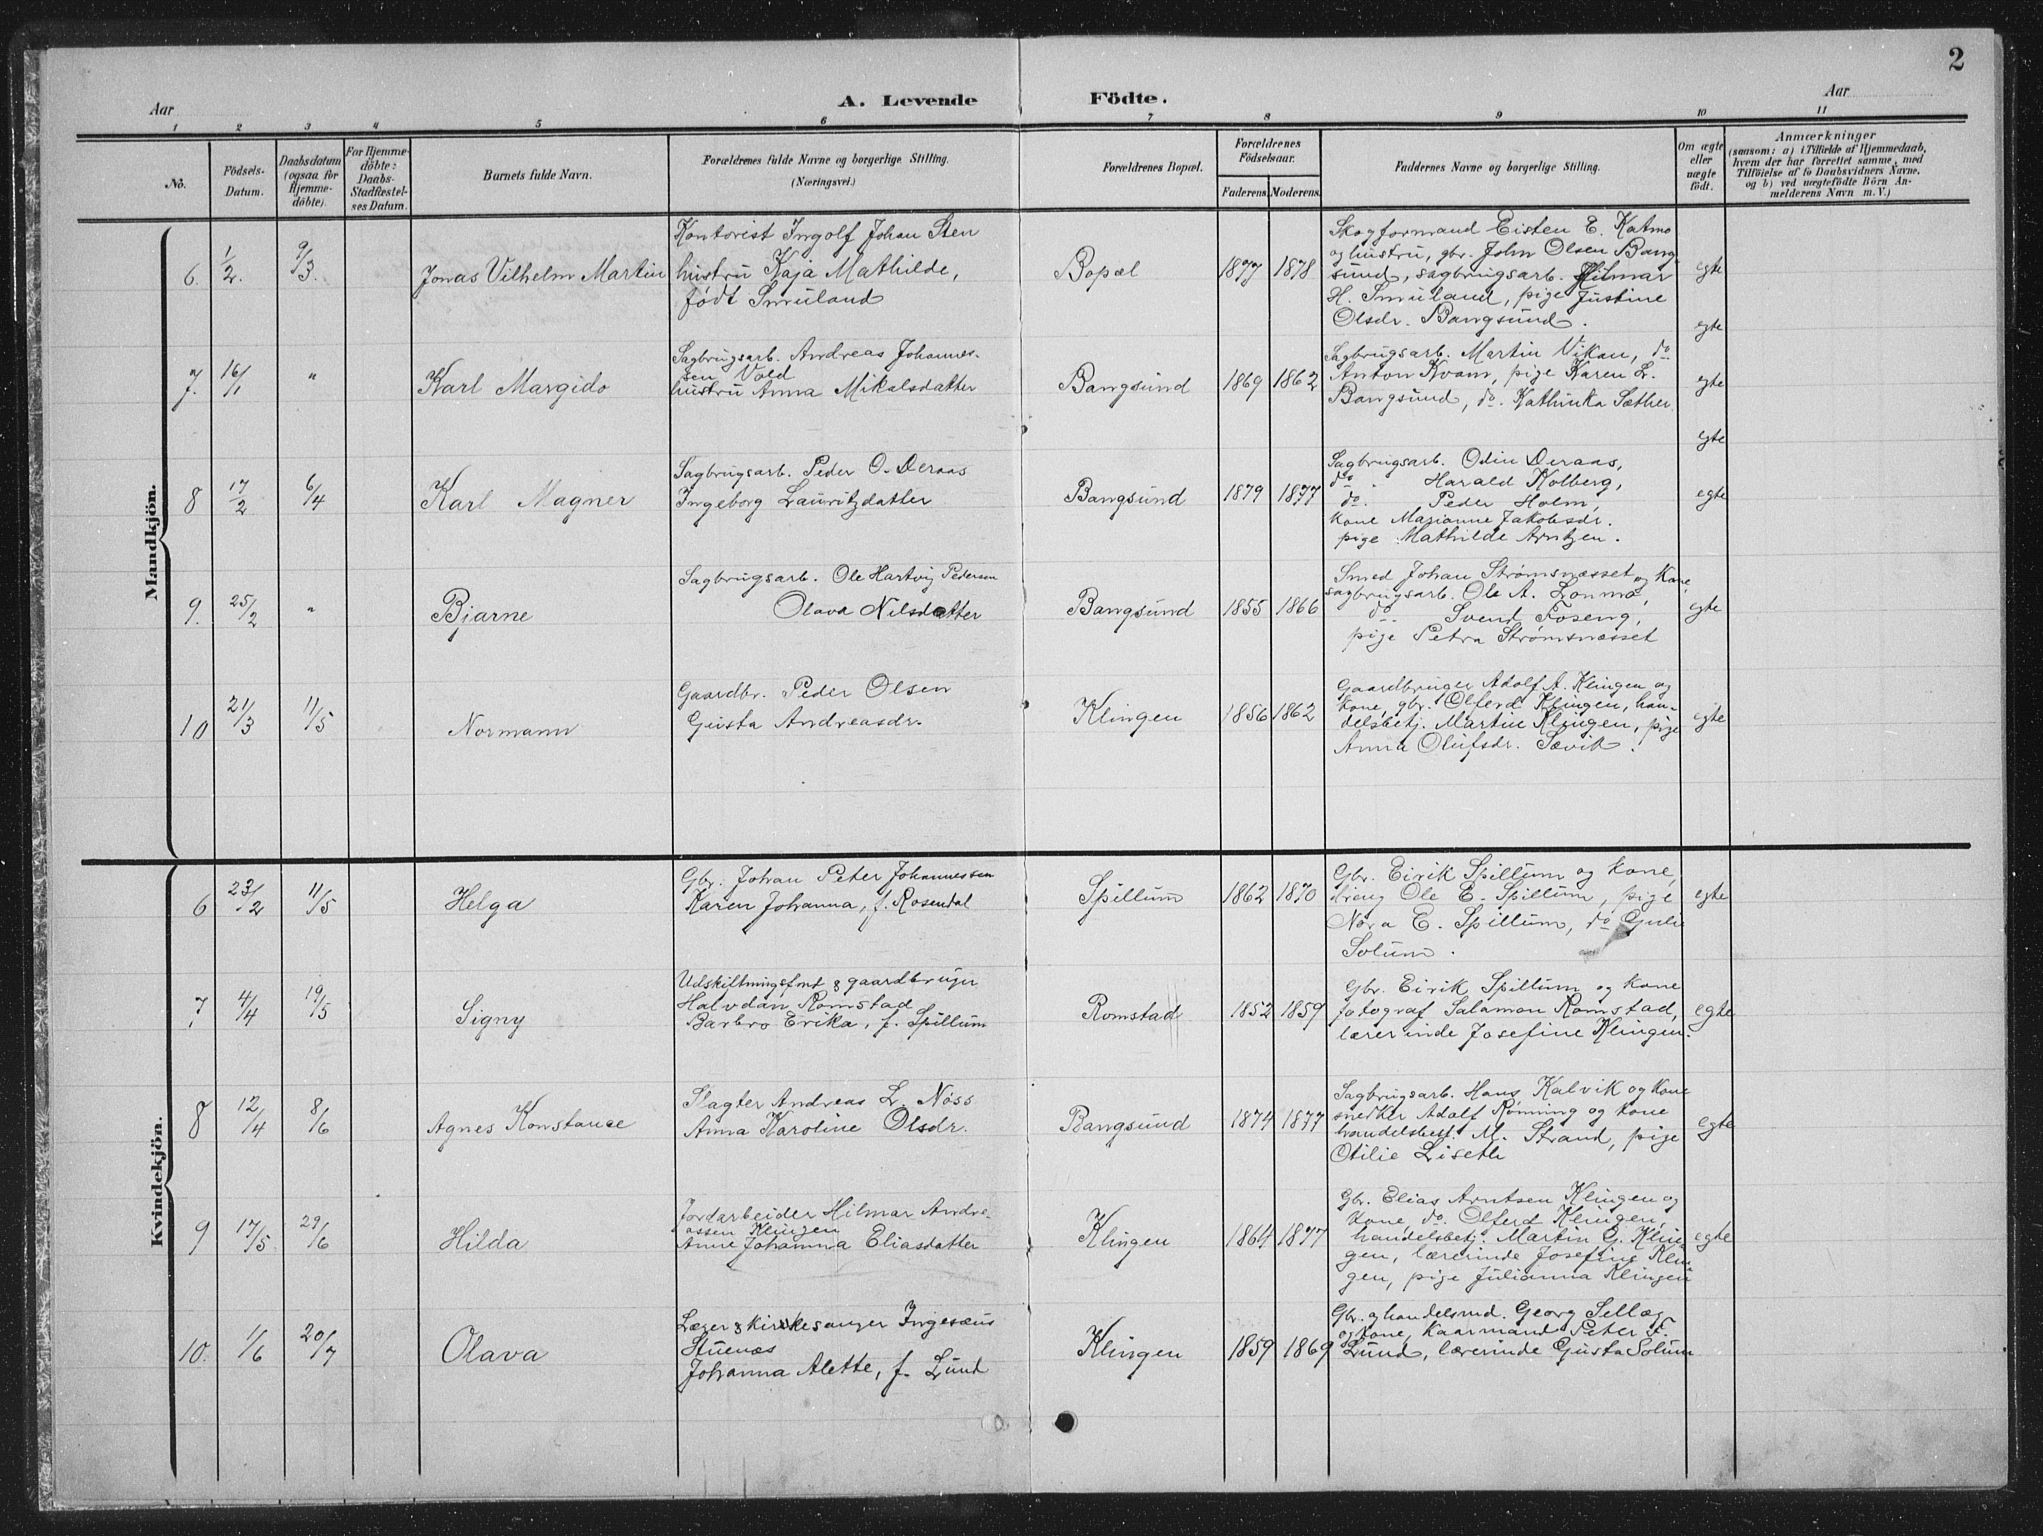 2
Aar
A. Levende Födte.
Aar
1 2 3 4 5 6 7 8 9 10 11
No.
Födsels-
Datum.
Daabsdatum
(ogsaa for
Hjemme-
döbte)
For Hjemme-
döbte:
Daabs-
Stadfæstel-
ses Datum.
Barnets fulde Navn.
Forældrenes fulde Navne og borgerlige Stilling.
(Næringsvei.)
Forældrenes Bopæl.
Forældrenes
Födselsaar.
Faderens. Moderens.
Faddernes Navne og borgerlige Stilling.
Om ægte
eller
uægte
födt.
Anmærkninger
(saasom: a) i Tilfælde af Hjemmedaab,
hvem der har forrettet samme, med
Tilföielse af to Daabsvidners Navne,
og b) ved uægtefödte Börn An-
melderens Navn m. V.)
Mandkjön.
6. 1/2. 9/3. Jonas Vilhelm Martin
Kontorist Ingolf Johan Sten
hustru Kaja Mathilde,
født Smuland
Bopæl 1877 1878
Skogformand Eisten E. Katmo
og hustru, gbr. John Olsen Bang-
sund, sagbrugsarb. Hilmar
H. Smuland, pige Justine
Olsdr. Bangsund.
egte
egte
7. 16/1 " Karl Margido
Sagbrugsarb. Andreas Johannes-
sen Vold
hustru Anna Mikalsdatter
Bangsund 1869 1862
Sagbrugsarb. Martin Vikan, do
Anton Kvam, pige Karen L.
Bangsund, do. Kathinka Sæther
egte
egte
8 17/2 6/4 Karl Magner
Sagbrugsarb. Peder O. Deraas
Ingeborg Lauritzdatter
Bangsund 1879 1877
Sagbrugsarb. Odin Deraas,
do. Harald Kolberg,
do. Peder Holm,
kone Marianne Jakobsdr.
pige Mathilde Arntzen.
egte
9. 25/2 " Bjarne
Sagbrugsarb. Ole Hartvig Pedersen
Olava Nilsdatter
Bangsund 1855 1866
Smed Johan Strømsnæsset og kone,
sagbrugsarb. Ole A. Lonmo,
do. Svend Foseng,
pige Petra Strømsnæsset
egte
10 21/3 11/5 Normann
Gaardbr. Peder Olsen
Gusta Andreasdr.
Klingen 1856 1862
Gaardbruger Adolf A. Klingen og
kone, gbr. Olferd Klingen, han-
delsbetj. Martin Klingen, pige
Anna Olufsdr. Sævik.
egte
Kvindekjön.
6 23/2 11/5 Helga
Gbr. Johan Peter Johannessen
Karen Johanna, f. Rosendal
Spillum 1862 1870
Gbr. Eirik Spillum og kone,
dreng Ole E. Spillum, pige
Nora E. Spillum, do Julie
Solum.
egte
7. 4/4 19/5 Signy
Udskiftningsfmt & gaardbruger
Halvdan Romstad
Barbro Erika, f. Spillum
Romstad 1852 1859
Gbr. Eirik Spillum og kone
fotograf Salamon Romstad,
lærerinde Josefine Klingen.
egte
8 12/4 8/6 Agnes Konstance
Slagter Andreas L. Nöss
Anna Karoline Olsdr.
Bangsund 1874 1877
Sagbrugsarb. Hans Kalvik og kone
snedker Adolf Rönning og kone
handelsbest. M. Strand, pige
Otilie Liseth
egte
9 17/5 29/6 Hilda
Jordarbeider Hilmar Andre-
assen Klingen
Anne Johanna Eliasdatter
Klingen 1864 1877
Gbr. Elias Arntsen Klingen og
kone, do. Olferd Klingen,
handelsbetj. Martin G. Klin-
gen, lærerinde Josefine Klin-
gen, pige Julianna Klingen
egte
10. 1/6 20/7 Olava
Lærer & kirkesanger Ingesæus
Stuenæs
Johanna Alette, f. Lund
Klingen 1859 1869
Gbr. og handelsmd. Georg Sellæg
og kone, kaarmand Peter F.
Lund, lærerinde Gusta Solum